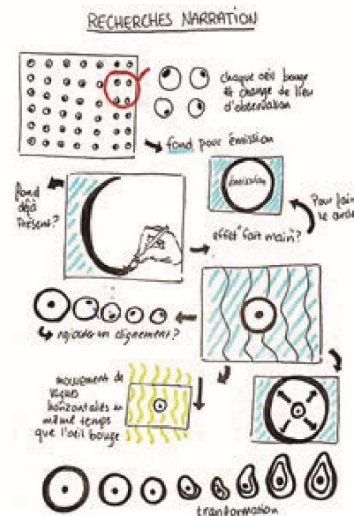 RECHERCHES NARRATION
chaque œil bouge
et change de lieu
d'observation
fond pour émission
fond
déjà
présent?
émission
effet "fait main"?
Pour faire
le
rajouter un clignement?
mouvement de
vagues
horizontales en
même temps
que l'œil bouge
transformation